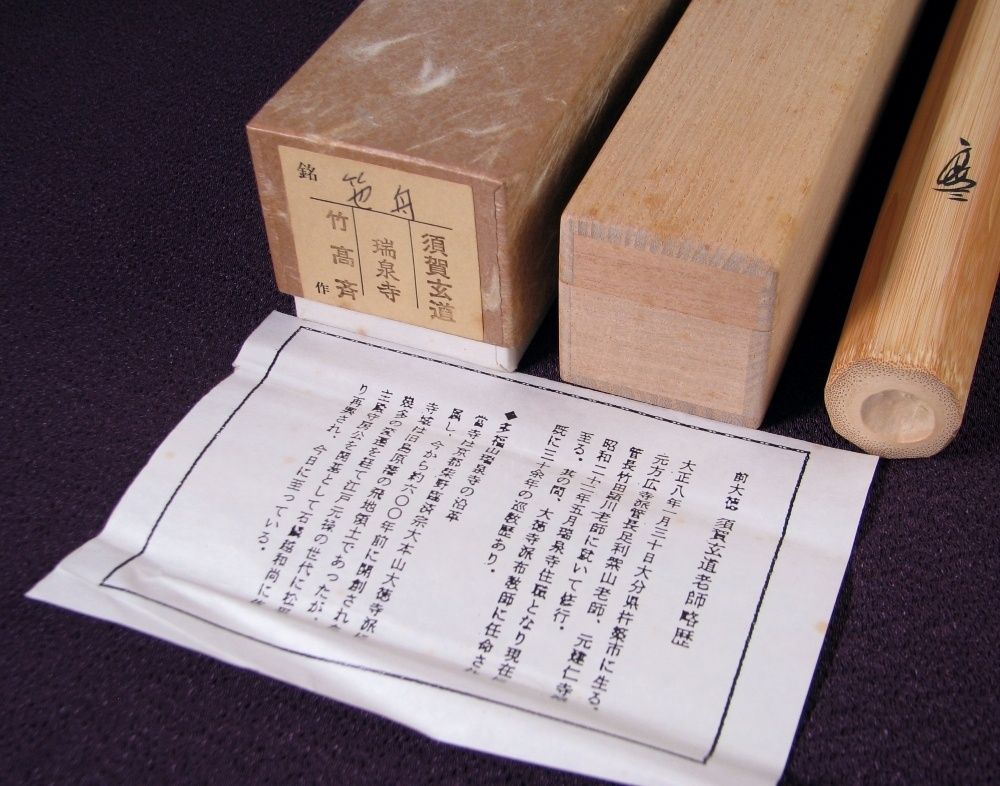 銘
舟
須賀玄道
瑞泉寺
竹高斉
作
前大徳 須賀玄道老師略歴
大正八年一月三十日大分県杵築市に生る。
元方広寺派管長足利紫山老師、元建仁寺
管長竹田頴川老師に就いて修行。
昭和二十二年五月瑞泉寺住職となり現在に
至る。其の間、大徳寺派布教師に任命さ
既に三十余年の巡教歴あり。
瑞泉寺の沿革
当寺は京都紫野臨済宗大本山大徳寺派に
属し、今から約六〇〇年前に開創され
寺域は旧島原藩の飛地領土であったが、
幾多の変遷を経て江戸元禄の世代に松平
主殿守房公を開基として石鱗越和尚に
り再興され、今日に至っている。